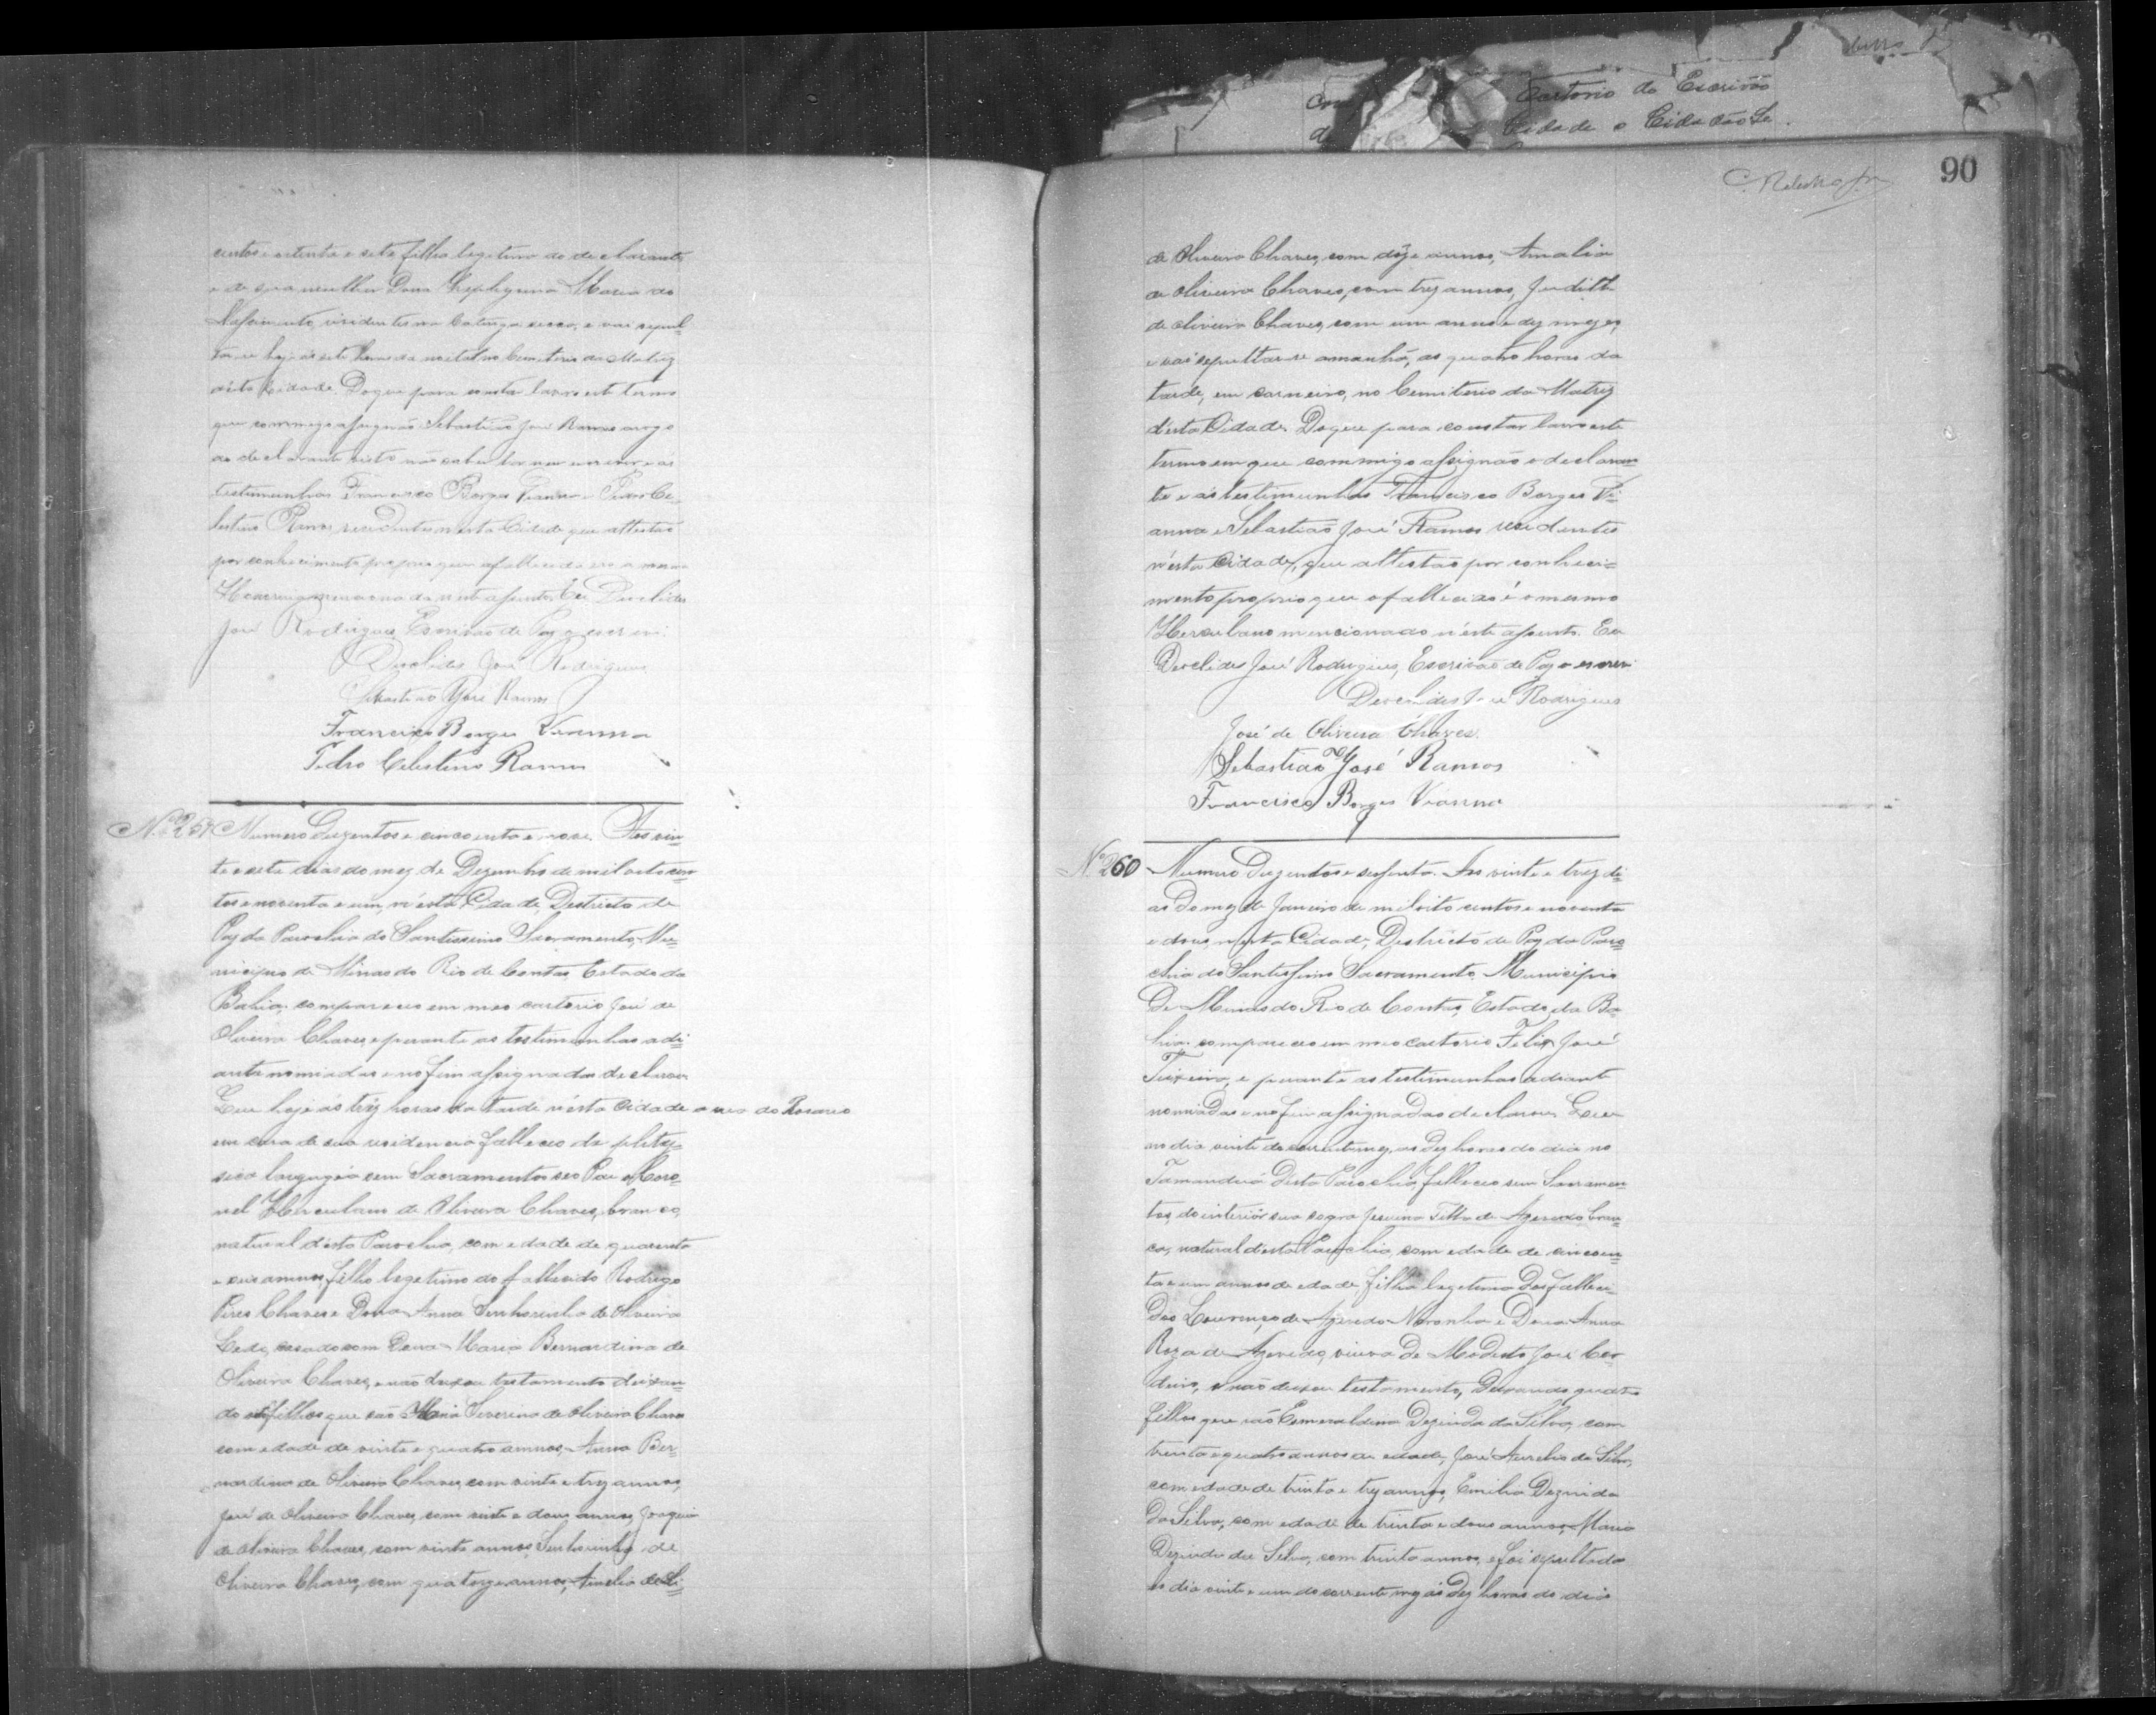 centos e oitenta e sete, filha legitima do declarante
e de sua mulher Dona Zephyrina Maria do
Nascimento, residentes na Catinga secca, e vai sepul-
tar-se hoje ás sete horas da noite no Cemiterio da Matriz
désta Cidade. Do que para constar lavro este termo
que commigo assignão Sebastião José Ramos arogo
do declarante visto não saber ler nem escrever e as
testimunhas Francisco Borges Vianna e Pedro Ce-
lestino Ramos, residentes nesta Cidade que attestão
por conhecimento proprio que a fallecida é a mesma
mencionada neste assento. Eu Deoclides
José Rodrigues, Escrivão de Paz o escrevi.
Deoclides José Rodrigues
Sebastião José Ramos
Francisco Borges Vianna
Pedro Celestino Ramos
Nº 259 Numero Duzentos e cincoenta e nove. Aos vin-
te e sete dias do mez de Dezembro de mil oito cen-
tos e noventa e um, n'ésta Cidade, Destricto de
Paz da Parochia do Santissimo Sacramento, Mu-
nicipio de Minas do Rio de Contas, Estado da
Bahia: compareceo em meo cartorio José de
Oliveira Chaves, e perante as testimunhas adi-
ante nomiadas e no fim assignadas declarou
Que hoje ás trez horas da tarde n'ésta Cidade a rua do Rosario
em casa de sua residencia falleceo de phtysi-
sica laryngea sem Sacramentos seo Pae o Coro-
nel Herculano de Oliveira Chaves, branco,
natural désta Parochia, com edade de quarenta
e seis annos, filho legetimo do fallecido Rodrigo
Pires Chaves e Dona Anna Senhorinha de Oliveira
Ledo, casado com Dona Maria Bernardina de
Oliveira Chaves, e não deixou testamento deixan-
do oito filhos que são Maria Severina de Oliveira Chaves
com edade de vinte e quatro annos, Anna Ber-
nardina de Oliveira Chaves, com vinte e trez annos,
José de Oliveira Chaves, com vinte e dous annos, Joaquim
de Oliveira Chaves, com vinte annos, Senhorinha de
Oliveira Chaves, com quatorze annos, Amelia de Oli-
Cartorio do Escrivão
Cidade o Cidadão
90
de Oliveira Chaves, com doze annos, Amalia
de Oliveira Chaves, com trez annos, Judith
de Oliveira Chaves, com um anno e dez mezes,
e vai sepultar-se amanhã, as quatro horas da
tarde, em carneiro, no Cemiterio da Matriz
d'ésta Cidade. Do que para constar lavro este
termo em que commigo assignão o declaran-
te e as testimunhas Francisco Borges Vi-
anna e Sebastião José Ramos residentes
n'ésta Cidade, que attestão por conheci-
mento proprio que o fallecido é o mesmo
Herculano mencionado n'éste assento. Eu
Deoclides José Rodrigues, Escrivão de Paz o escrevi
Deoclides José Rodrigues
José de Oliveira Chaves.
Sebastião José Ramos
Francisco Borges Vianna
Nº 260 Numero Duzentos e sessenta. Aos vinte e trez di-
as do mez de Janeiro de mil oito centos e noventa
e dous, nésta Cidade, Destricto de Paz da Paro-
chia do Santissimo Sacramento, Municipio
De Minas do Rio de Contas, Estado da Ba-
hia: compareceo em meo cartorio Felix José
Teixeira, e perante as testimunhas adiante
nomiadas e no fim assignadas declarou Que
no dia vinte do corrente mez, as dez horas do dia no
Tamanduá Desta Parochia, falleceo sem Sacramen-
tos, do interior sua sogra Jesuina Tilla de Azevedo bran-
ca, natural désta Parochia, com edade de cincoen-
ta e um annos de edade, filha legetima Dos falleci-
Dos Lourenço de Azevedo Noronha e Dona Anna
Roza de Azevedo, viuva De Modesto José Cor-
deiro, e não deixou testamento, Deixando quatro
filhos que são Esmeraldina Dezinda da Silva, com
trinta e quatro annos de edade, José Aurelio da Silva,
com edade de trinta e trez annos, Emilia Dezinda
Da Silva, com edade de trinta e dous annos, Maria
Dezinda da Silva, com trinta annos, e foi sepultada
no dia vinte e um do corrente mez ás Dez horas do dia